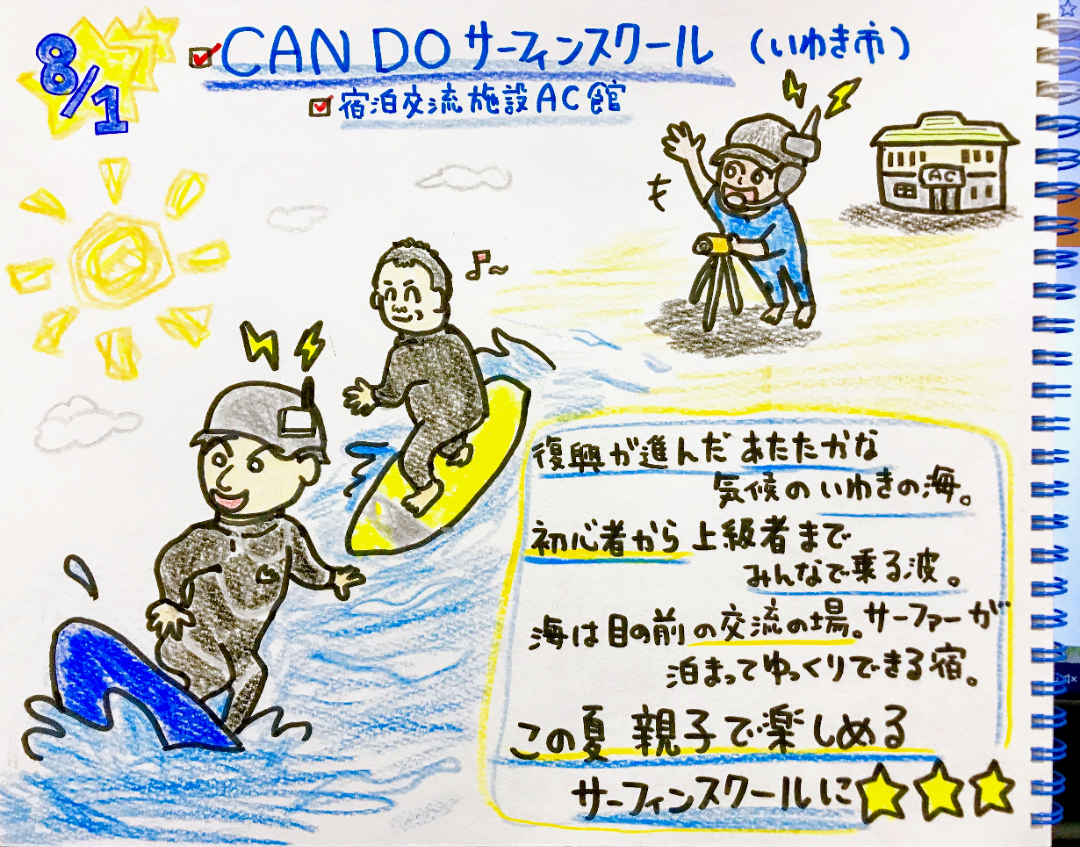 8/1
CAN DO サーフィンスクール (いわき市)
宿泊交流施設AC館
AC
も
復興が進んだ あたたかな
気候の いわきの海。
初心者から 上級者まで
みんなで乗る波。
海は目の前の交流の場。サーファーが
泊まってゆっくりできる宿。
この夏 親子で楽しめる
サーフィンスクールに☆☆☆